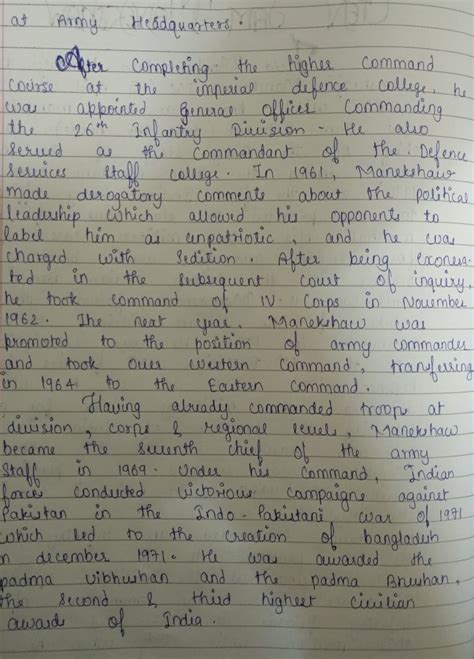 at Army Headquarters.
After completing the higher command
course at the imperial defence college, he
was appointed General Officer Commanding
the 26th Infantry Division. He also
served as the Commandant of the Defence
Services Staff College. In 1961, Manekshaw
made derogatory comments about the political
leadership which allowed his opponents to
label him as unpatriotic, and he was
charged with sedition. After being exonera-
ted in the subsequent court of inquiry,
he took command of IV Corps in November
1962. The next year, Manekshaw was
promoted to the position of army commander
and took over western command, transfering
in 1964 to the Eastern Command.
Having already commanded troops at
division, corps & regional level, Manekshaw
became the seventh chief of the army
Staff in 1969. Under his command, Indian
force conducted victorious campaigns against
Pakistan in the Indo-Pakistani war of 1971
which led to the creation of bangladesh
in december 1971. He was awarded the
padma vibhushan and the padma Bhushan,
the second & third highest civilian
awards of India.